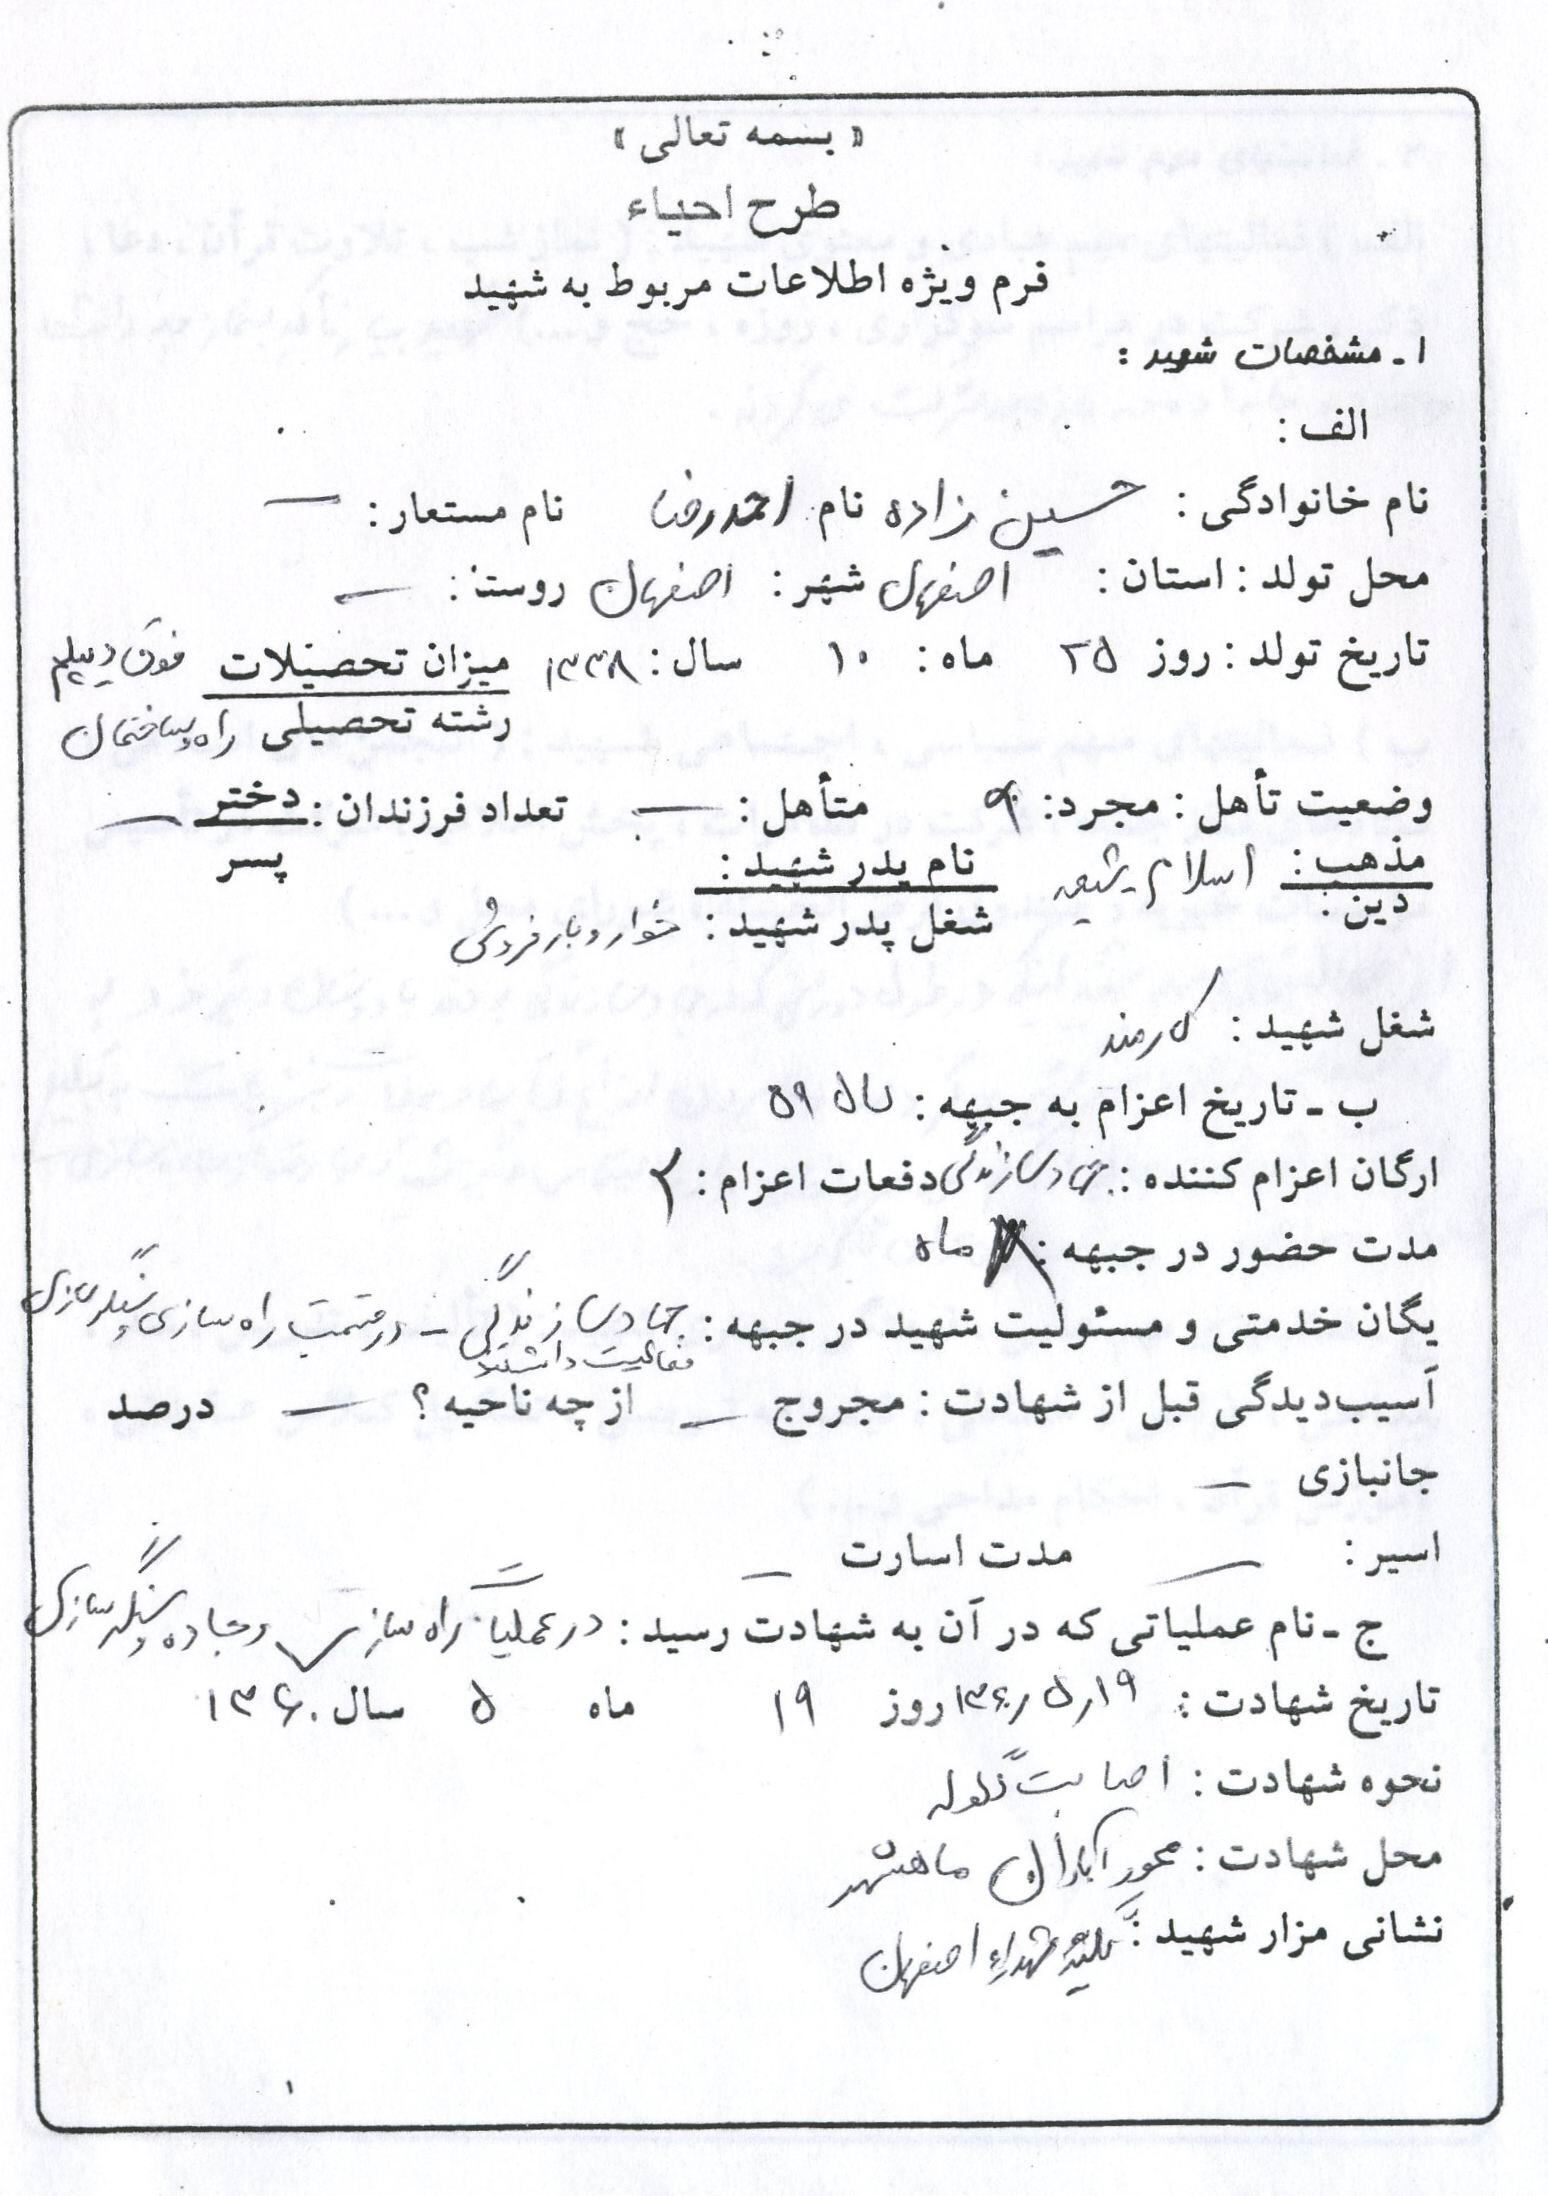 « بسمه تعالی »
طرح احیاء
فرم ویژه اطلاعات مربوط به شهید
۱ ـ مشخصات شهید :
الف :
نام خانوادگی : حسین زاده نام احمدرضا نام مستعار : —
محل تولد : استان : اصفهان شهر : اصفهان روستا : —
تاریخ تولد : روز ۲۵ ماه : ۱۰ سال : ۱۳۳۸ میزان تحصیلات فوق دیپلم
رشته تحصیلی راه و ساختمان
وضعیت تأهل : مجرد : متأهل : — تعداد فرزندان : دختر —
پسر
مذهب : اسلام شیعه نام پدر شهید :
دین : شغل پدر شهید : خواروبار فروشی
شغل شهید : کارمند
ب ـ تاریخ اعزام به جبهه : سال ۵۹
ارگان اعزام کننده : جهاد سازندگی دفعات اعزام : ۲
مدت حضور در جبهه : ماه
یگان خدمتی و مسئولیت شهید در جبهه : جهاد سازندگی – در قسمت راه سازی و سنگر سازی
فعالیت داشتند
آسیب‌دیدگی قبل از شهادت : مجروح — از چه ناحیه ؟ — درصد
جانبازی —
اسیر : — مدت اسارت —
ج ـ نام عملیاتی که در آن به شهادت رسید : در عملیات راه سازی و جاده و سنگر سازی
تاریخ شهادت : ۱۳۶۰/۵/۱۹ روز ۱۹ ماه ۵ سال ۱۳۶۰
نحوه شهادت : اصابت گلوله
محل شهادت : محور آبادان ماهشهر
نشانی مزار شهید : گلستان شهداء اصفهان